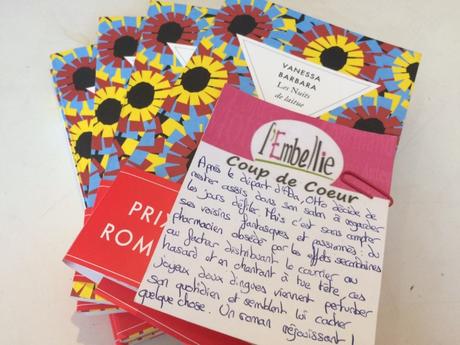 VANESSA
BARBARA
Les Nuits
de laitue
l'Embellie
Coup de Coeur
Après le départ d'Ada, Otto décide de
rester assis dans son salon à regarder
les jours défiler. Mais c'est sans compter
ses voisins fantasques et passionnés, du
pharmacien obsédé par les effets secondaires
au facteur distribuant le courrier au
hasard et en chantant à tue tête, ces
joyeux doux dingues viennent perturber
son quotidien et semblent lui cacher
quelque chose. Un roman réjouissant !
PRIX
ROM